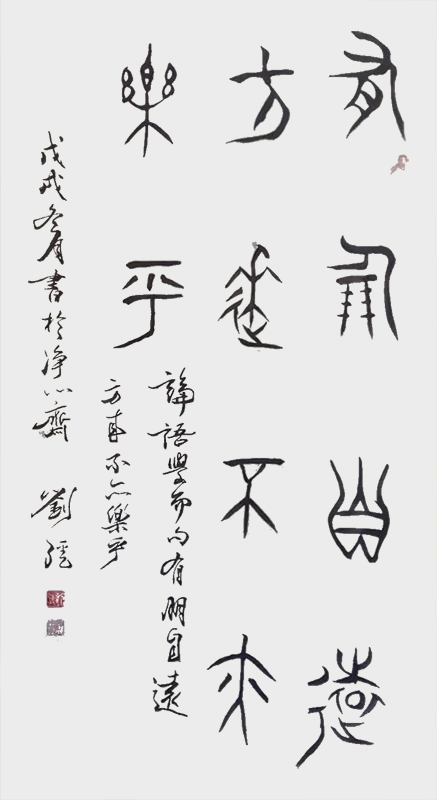 有朋自遠
方來不亦
樂乎
論語學而句有朋自遠
方來不亦樂乎
戊戌冬月書於淨心齋 劉